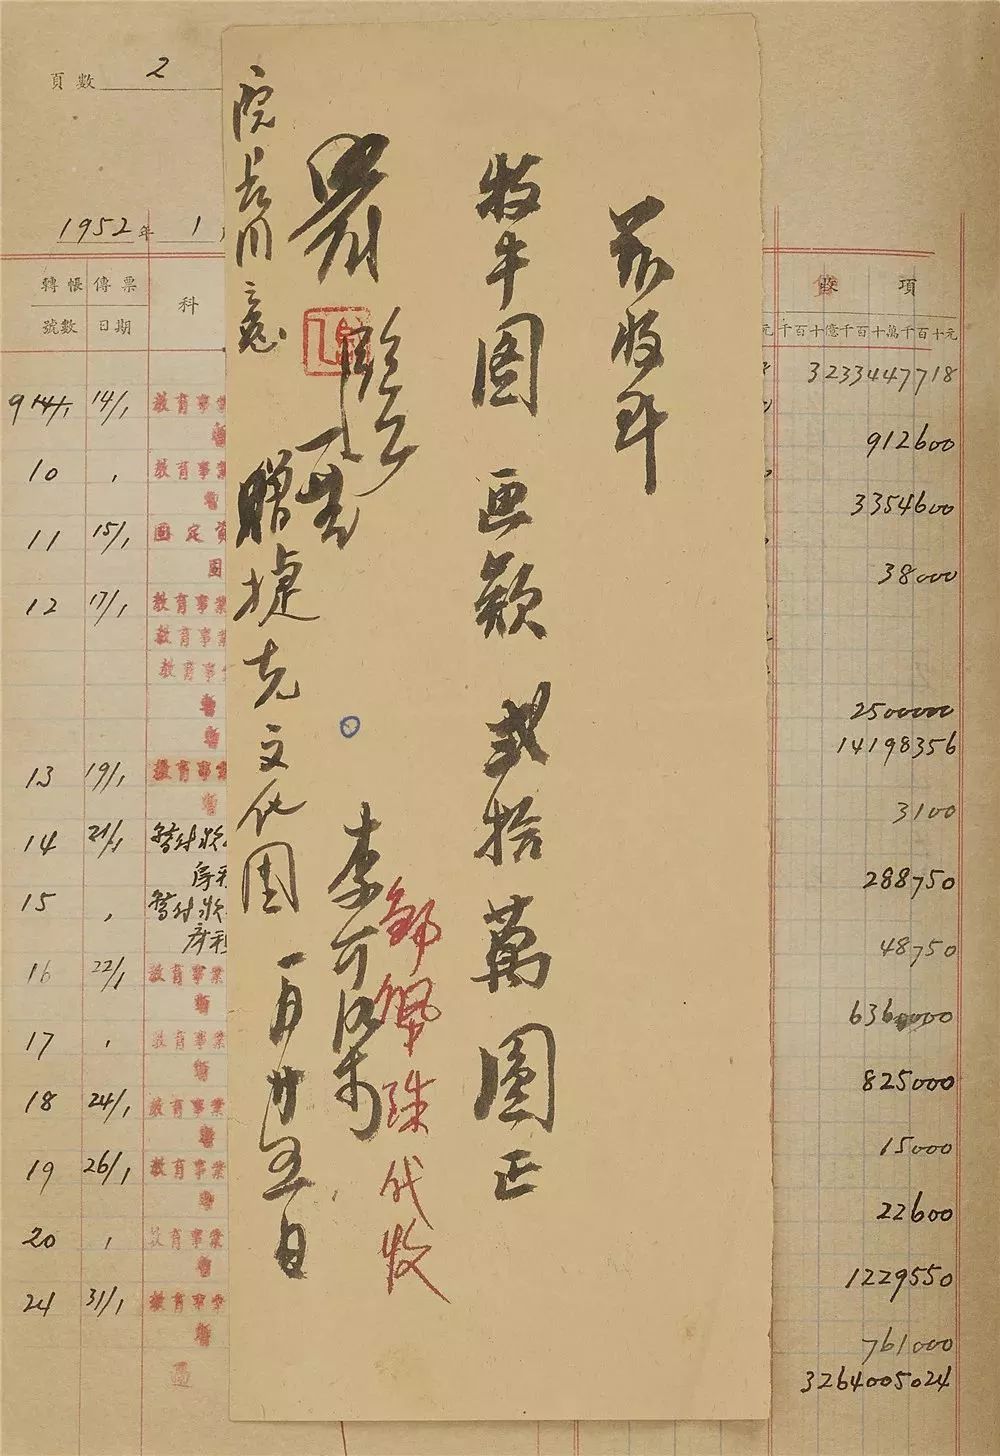 兹收到
牧牛圖 画欵 弍拾萬圓正
鄒佩珠代收
李可染
一月廿五日
贈捷克文化團
院長同意
頁數 2
1952年 1
轉帳號數 傳票日期 科
收項
元 千百十億千百十萬千百十元
3233447718
914/1 14/1 教育事業
912600
10 , 教育事業
3354600
11 15/1 固定資
38000
12 17/1 教育事業
教育事業
教育事
2500000
14198356
13 19/1 教育事業
3100
14 21/1 暫付收
288750
15 , 暫付收
48750
16 22/1 教育事業
6360000
17 , 教育事業
825000
18 24/1 教育事業
15000
19 26/1 教育事業
22600
20 , 教育事業
1229550
24 31/1 教育事業
761000
3264005024